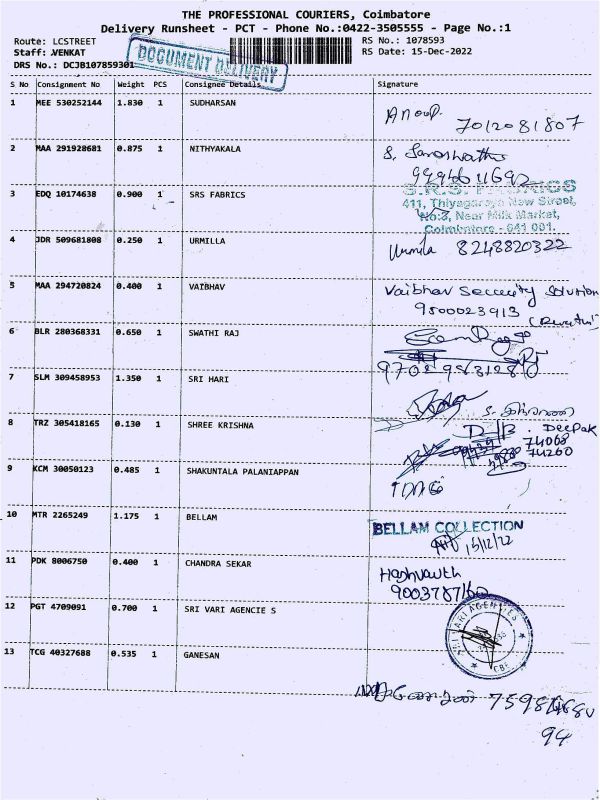 THE PROFESSIONAL COURIERS, Coimbatore
Delivery Runsheet - PCT - Phone No.:0422-3505555 - Page No.:1
Route: LCSTREET RS No.: 1078593
Staff: VENKAT RS Date: 15-Dec-2022
DRS No.: DCJB107859301
DOCUMENT DELIVERY
S No Consignment No Weight PCS Consignee Details Signature
1 MEE 530252144 1.830 1 SUDHARSAN
Anoop. 7012081807
2 MAA 291928681 0.875 1 NITHYAKALA
S. Saraswathi
3 EDQ 10174638 0.900 1 SRS FABRICS
S.R.S. FABRICS
411, Thiyagaraya New Street,
No:3, Near Milk Market,
Coimbatore - 641 001.
4 JDR 509681808 0.250 1 URMILLA
Urmila 8248820322
5 MAA 294720824 0.400 1 VAIBHAV
Vaibhav Security Solution
9500023913
6 BLR 280368331 0.650 1 SWATHI RAJ
7 SLM 309458953 1.350 1 SRI HARI
8 TRZ 305418165 0.130 1 SHREE KRISHNA
Deepak
74068
74260
9 KCM 30050123 0.485 1 SHAKUNTALA PALANIAPPAN
10 MTR 2265249 1.175 1 BELLAM
BELLAM COLLECTION
15/12/22
11 PDK 8006750 0.400 1 CHANDRA SEKAR
12 PGT 4709091 0.700 1 SRI VARI AGENCIE S
VARI AGENCIES
CBE
13 TCG 40327688 0.535 1 GANESAN
94